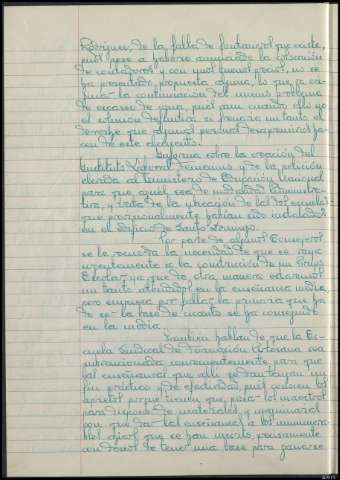 Rodríguez, de la falta de fontaneros que existe,
pues pese a haberse anunciado la colocación
de contadores y con qué buenos precios, no se
ha presentado propuesta alguna, lo que ocasiona la continuación del mismo problema
de escasez de agua, pues aun cuando ello no
es solución definitiva si frenaría un tanto el
derroche que algunos personas desaprensivas hacen de este elemento.
Informa sobre la creación del
Instituto Laboral Femenino y de la petición
elevada al Ministerio de Educación Nacional
para que aquel sea de modalidad Administrativa, y trata de la ubicación de las dos escuelas
que provisionalmente habían sido instaladas
en el edificio de Santo Domingo.
Por parte de algunos Consejeros
se le recuerda la necesidad de que se vaya
urgentemente a la construcción de un Grupo
Escolar ya que de otra manera estaremos
un tanto atendidos en la enseñanza media,
pero empieza por fallar la primaria que ha
de ser la base de cuanto se ha conseguido
en la media.
También hablan de que la Escuela Sindical de Formación Artesana sea
subvencionada convenientemente para que
las enseñanzas que allí se dan tengan un
fin práctico y de efectividad, pues conocen los
aprietos porque tienen que pasar los maestros
para disponer de materiales y maquinaria
con que dar las enseñanzas a los innumerables chicos que se han inscrito, precisamente
con deseos de tener una base para ganarse